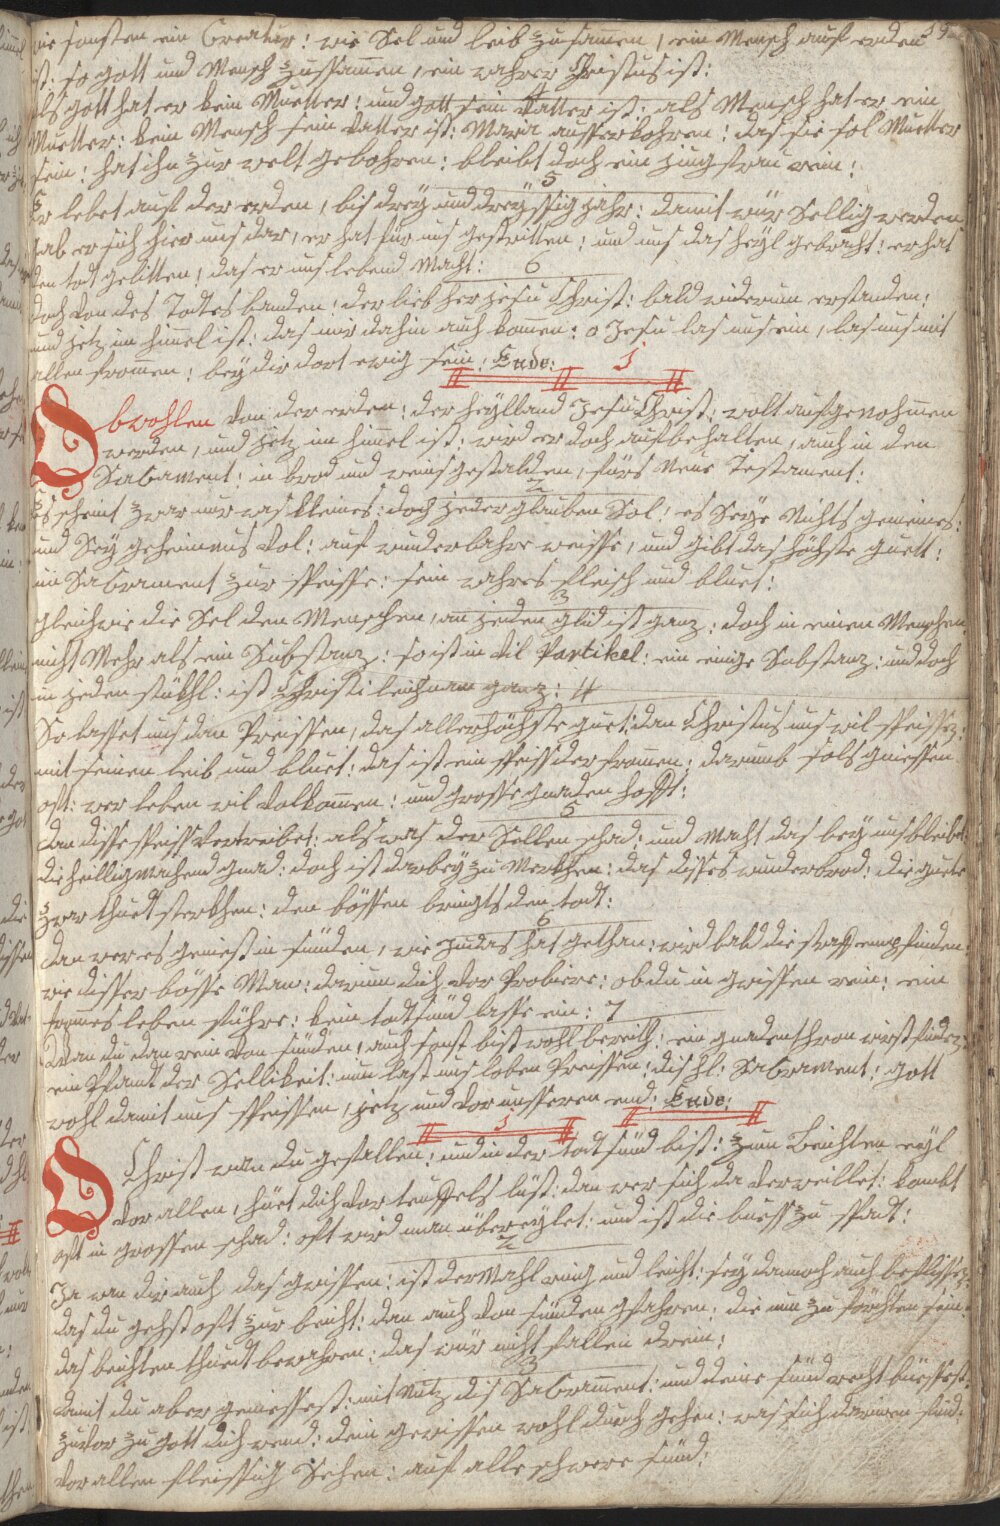 wie sonsten ein Creatur: wie Sel und leib zusamen, ein Mensch auf erden 59
ist: so gott und Mensch zussamen, ein wahrer Christus ist:
4
als gott hat er kein Muetter: und gott sein vatter ist: als Mensch hat er ein
Muetter: kein Mensch sein vatter ist: Maria ausserkohren: das sie sol Muetter
sein: hat ihn zur welt gebohren: bleibt doch ein jungfrau rein:
5
Er lebet auf der erden, bis dreÿ und dreÿssig jahr: damit wür Sellig werden
gab er sich hier uns dar, er hat für uns gestritten: und uns das heÿl gebracht: er hat
den todt gelitten, das er uns lebend Macht: 6
doch von des Todtes banden: der lieb her jesu Christ: bald widerum erstanden:
und jetz im himel ist: das wir dahin auch komen: o Jesu las uns ein, las uns mit
allen fromen: beÿ dir dort ewig sein: Ende: 1
Obwohlen von der erden: der heÿlland Jesu Christ: wolt aufgenohmen
werden, und jetz im himel ist: wird er doch aufbehalten, auch in den
Sacrament: in brod und weins gestalden, fürs Neue Testament:
2
Es scheint zwar nur was kleines: doch jeder glauben Sol: es Seÿe Nichts gemeines:
und Seÿ geheimnus vol: auf wunderbahre weisse, und gibt das höchste guett:
im Sacrament zur speisse: sein wahres fleisch und bluet:
3
gleichwie die Sel den Menschen, an jeden glid ist ganz: doch in einen Menschen
nicht Mehr als ein Substanz: so ist in vil Partikel: ein einige Substanz: und doch
in jeden stükhl: ist Christi leichnam ganz: 4
So lasset uns dan Preissen, das allerhöchste guet: dan Christus uns wil speissen:
mit seinen leib und bluet: das ist ein speiss der fromen: darumb sols geniessen
oft: wer leben wil volkomen: und grosse gnaden hofft:
5
dan disse speiss vertreibet: als was der Sellen schad: und Macht das beÿ uns bleibet:
die heillig machend gnad: doch ist darbeÿ zu Merkhen: das disses wunderbrod: die guete
zwar thuedt sterkhen: den bössen bringts den todt:
6
dan wer es geniest in sünden, wie Judas hat gethan: wird bald die straff empfinden:
wie disser bösse Man: darum dich vor Probiere: ob du in gwissen rein: ein
fromes leben führe: kein todtsünd lasse ein: 7
Wan du dan rein von sünden, auch sonst bist wohl bereith: ein gnadenthron wirst finden:
ein Pfandt der Sellikeit: nun last uns loben Preissen: dis hl: Sacrament: gott
wohl damit uns speissen, jetz und vor unsseren end: Ende:
1
O Christ wan du gefallen: und in der todtsünd bist: zum Beichten eÿl
vor allen, hüet dich vor teuffels list: dan wer sich da verweillet: kombt
oft in grossen schad: oft wird man übereÿlet: und ist die buess zu spadt:
2
Ja wan dir auch das gwissen: ist der Mahl ruig und leicht: seÿ dannoch auch beflissen:
das du gehst oft zur beicht: dan auch von sünden gfahren: die nun zu förchten sein:
das beichten thuedt bewahren: das wür nicht fallen drein:
3
damit du aber geniessest: mit Nutz dis Sacrament: und deine sünd recht büessest:
zuvor zu gott dich wend: dein gewissen wohl durch gehen: was sich darinen find:
vor allen fleissig Sehen: auf alle schwere sünd: